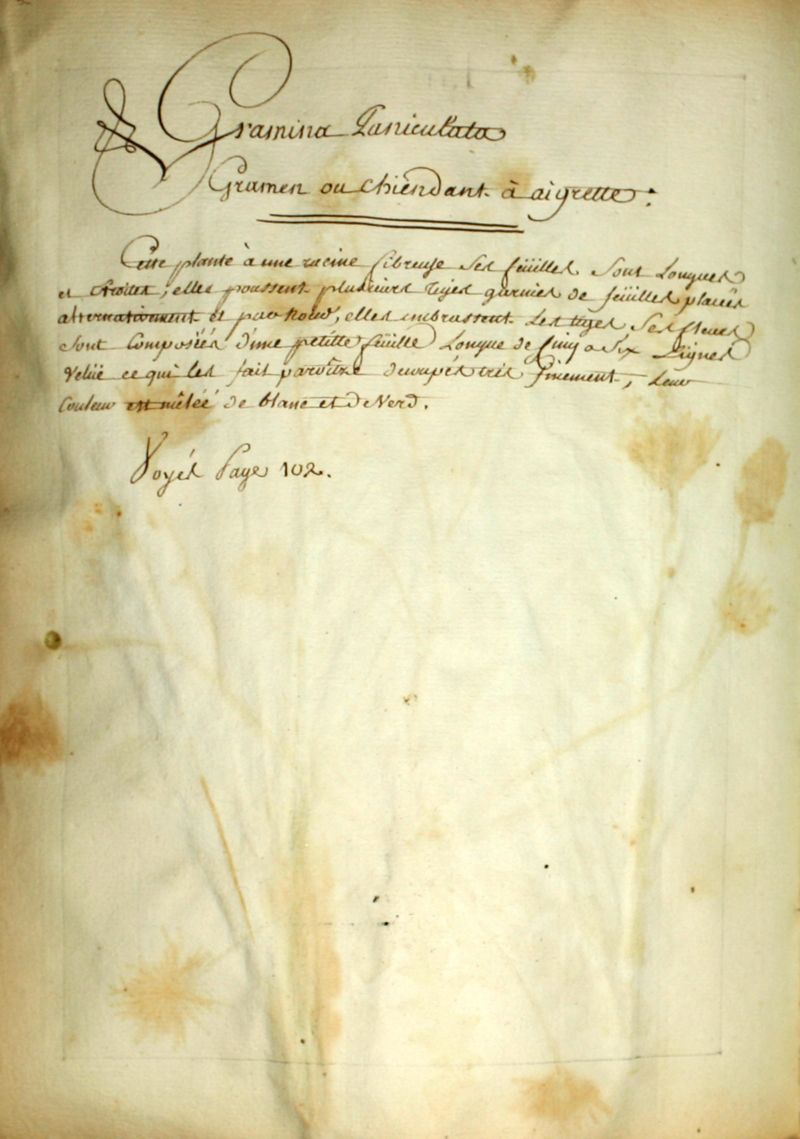 Gramina Paniculata
Gramen ou chiendant à aigrette.
Cette plante à une racine fibreuse ses feüilles sont longues
et étroites, elles poussent plusieurs tiges garnies de feüilles placés
alternatiment et par noeud, elles embrassent les tiges, ses fleurs
sont composéés d'une petitte feuille longue de cinq a six lignes
velüe ce qui les fait paroitre decoupés très finement, leur
couleur est mêleé de blanc et de verd.
Voyés Page 102.